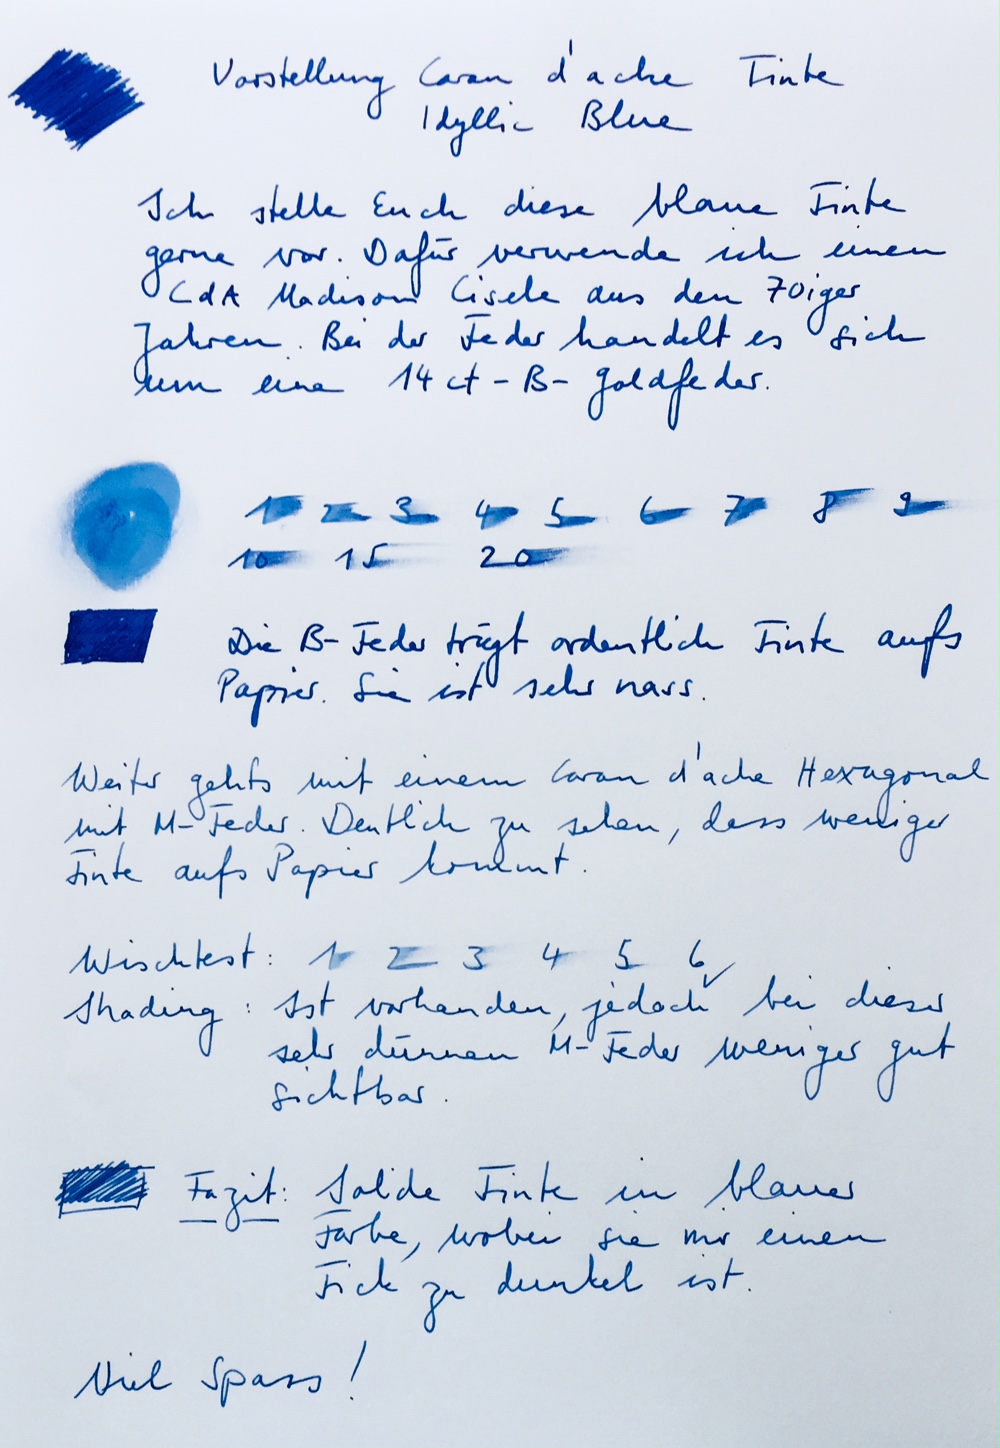 Vorstellung Caran d'ache Tinte
Idyllic Blue
Ich stelle Euch diese blaue Tinte
gerne vor. Dafür verwende ich einen
CdA Madison Cisele aus den 70iger
Jahren. Bei der Feder handelt es sich
um eine 14 ct - B - Goldfeder.
1 2 3 4 5 6 7 8 9
10 15 20
Die B-Feder trägt ordentlich Tinte aufs
Papier. Sie ist sehr nass.
Weiter gehts mit einem Caran d'ache Hexagonal
mit M-Feder. Deutlich zu sehen, dass weniger
Tinte aufs Papier kommt.
Wischtest: 1 2 3 4 5 6 ✓
Shading: Ist vorhanden, jedoch bei dieser
sehr dünnen M-Feder weniger gut
sichtbar.
Fazit: Solide Tinte in blauer
Farbe, wobei sie mir einen
Tick zu dunkel ist.
Viel Spass!